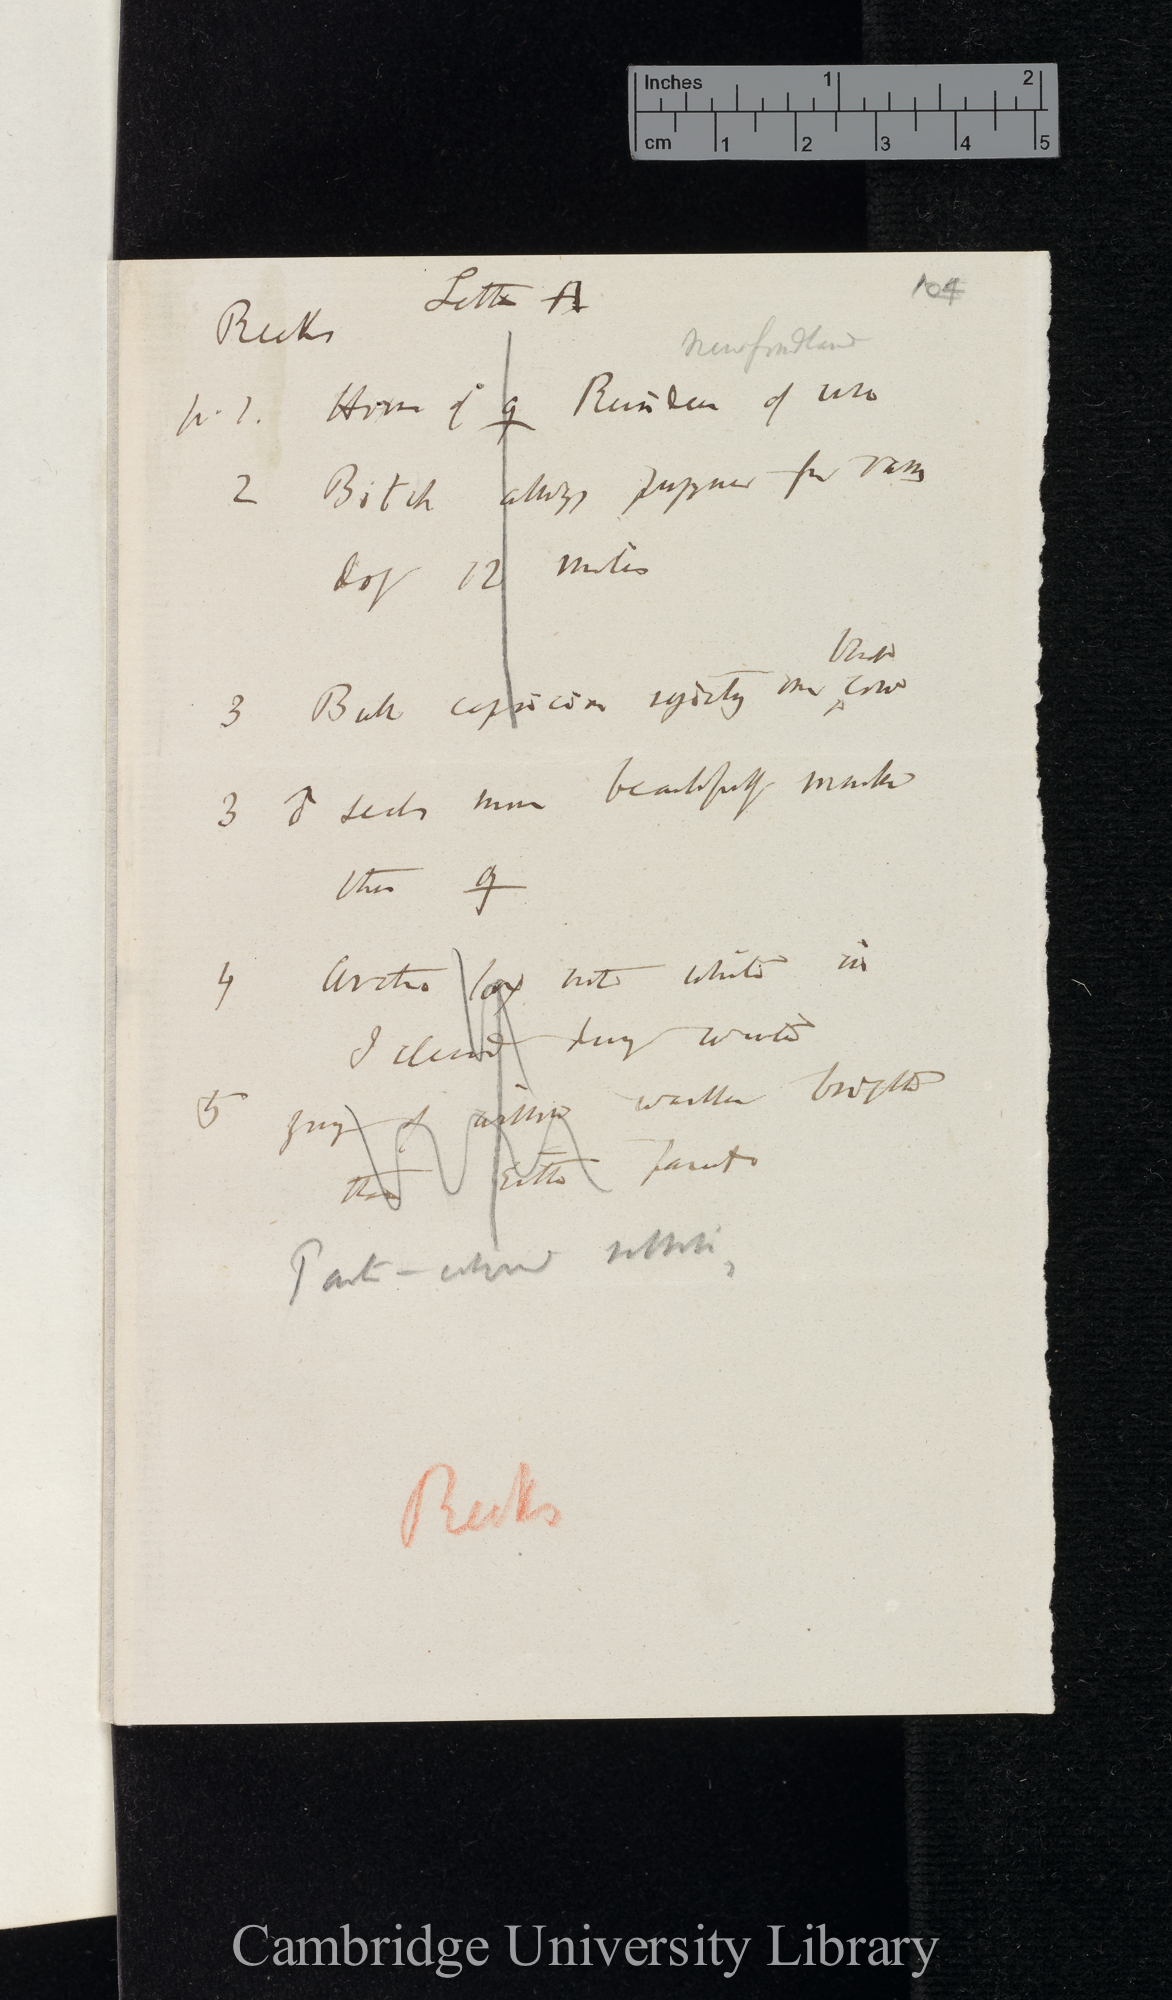 Inches 1 2
cm 1 2 3 4 5
104
Letter A
Reeks
Newfoundland
p. 1. Horns of ♀ Reindeer of use
2 Bitch always prefers for
dog 12 miles
3 Bull capricious rejecting one black cow
3 ♂ seals more beautifully marked
than ♀
4 Arctic fox not white in
Iceland during winter
5 young of willow warbler brighter
than either parents
Parti-coloured rabbits,
Reeks
Cambridge University Library